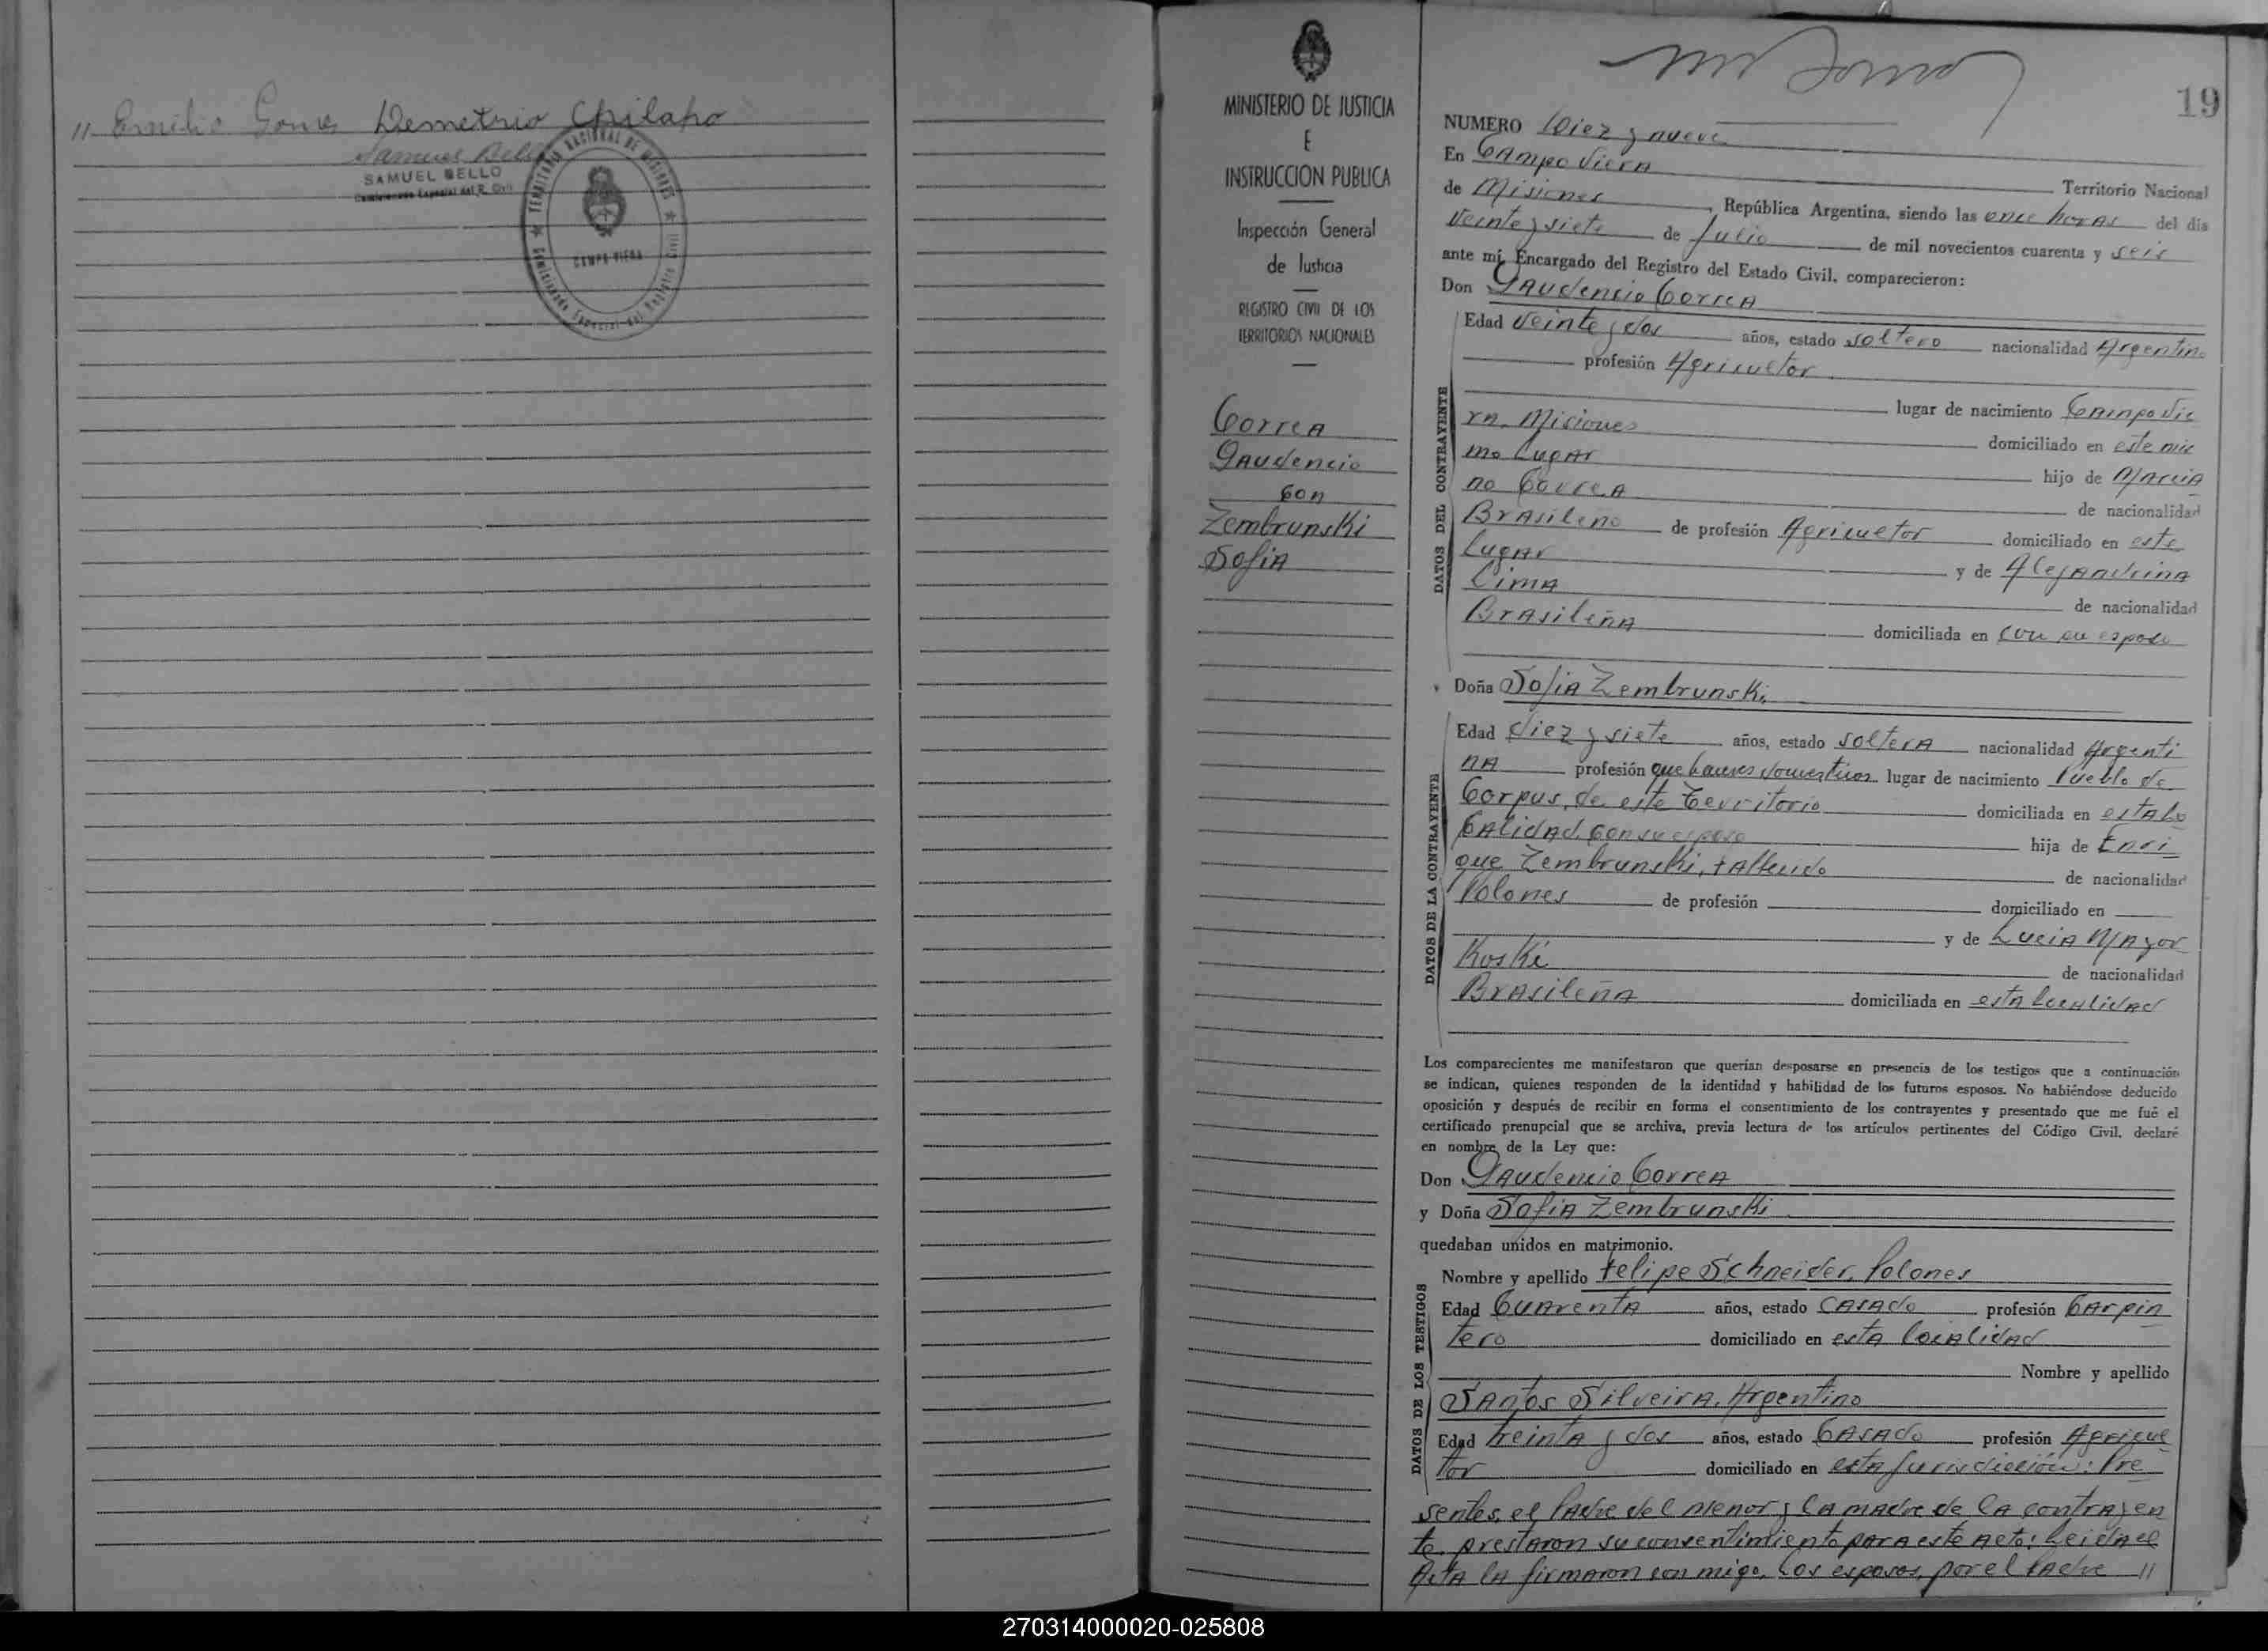 " Emilio Gomes Demetrio Chilapo
Samuel Bello
SAMUEL BELLO
Comisionado Especial del R. Civil
TERRITORIO NACIONAL DE MISIONES
CAMPO VIERA
Comisionado Especial del Registro Civil
MINISTERIO DE JUSTICIA
E
INSTRUCCION PUBLICA
Inspección General
de Justicia
REGISTRO CIVIL DE LOS
TERRITORIOS NACIONALES
Correa
Gaudencio
con
Zembrunski
Sofia
19
NUMERO Diez y nueve
En Campo Viera Territorio Nacional
de Misiones, República Argentina, siendo las once horas del día
veinte y siete de Julio de mil novecientos cuarenta y seis
ante mí, Encargado del Registro del Estado Civil, comparecieron:
Don Gaudencio Correa
DATOS DEL CONTRAYENTE
Edad veinte y dos años, estado soltero nacionalidad Argentino
profesión Agricultor
lugar de nacimiento Campo Vie
ra, Misiones domiciliado en este mis
mo Lugar hijo de Marcia
no Correa de nacionalidad
Brasileño de profesión Agricultor domiciliado en este
Lugar y de Alejandrina
Lima de nacionalidad
Brasileña domiciliada en con su esposo
Doña Sofia Zembrunski,
DATOS DE LA CONTRAYENTE
Edad diez y siete años, estado soltera nacionalidad Argenti
na profesión quehaceres domesticos lugar de nacimiento Pueblo de
Corpus, de este Territorio domiciliada en esta lo
calidad, con su esposo hija de Enri
que Zembrunski, fallecido de nacionalidad
Polones de profesión domiciliado en
y de Lucia Mayor
Koski de nacionalidad
Brasileña domiciliada en esta localidad
Los comparecientes me manifestaron que querían desposarse en presencia de los testigos que a continuación
se indican, quienes responden de la identidad y habilidad de los futuros esposos. No habiéndose deducido
oposición y después de recibir en forma el consentimiento de los contrayentes y presentado que me fué el
certificado prenupcial que se archiva, previa lectura de los artículos pertinentes del Código Civil, declaré
en nombre de la Ley que:
Don Gaudencio Correa
y Doña Sofia Zembrunski
quedaban unidos en matrimonio.
DATOS DE LOS TESTIGOS
Nombre y apellido Felipe Schneider, Polones
Edad Cuarenta años, estado casado profesión Carpin
tero domiciliado en esta localidad
Nombre y apellido
Santos Silveira, Argentino
Edad treinta y dos años, estado Casado profesión Agricul
tor domiciliado en esta Jurisdicción: Pre
sentes, el Padre del menor y la madre de la contrayen
te, prestaron su consentimiento para este acto: Leida el
Acta la firmaron con migo, los esposos, por el Padre "
270314000020-025808